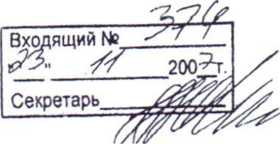 Входящий № 374
"23" 11 2007 г.
Секретарь